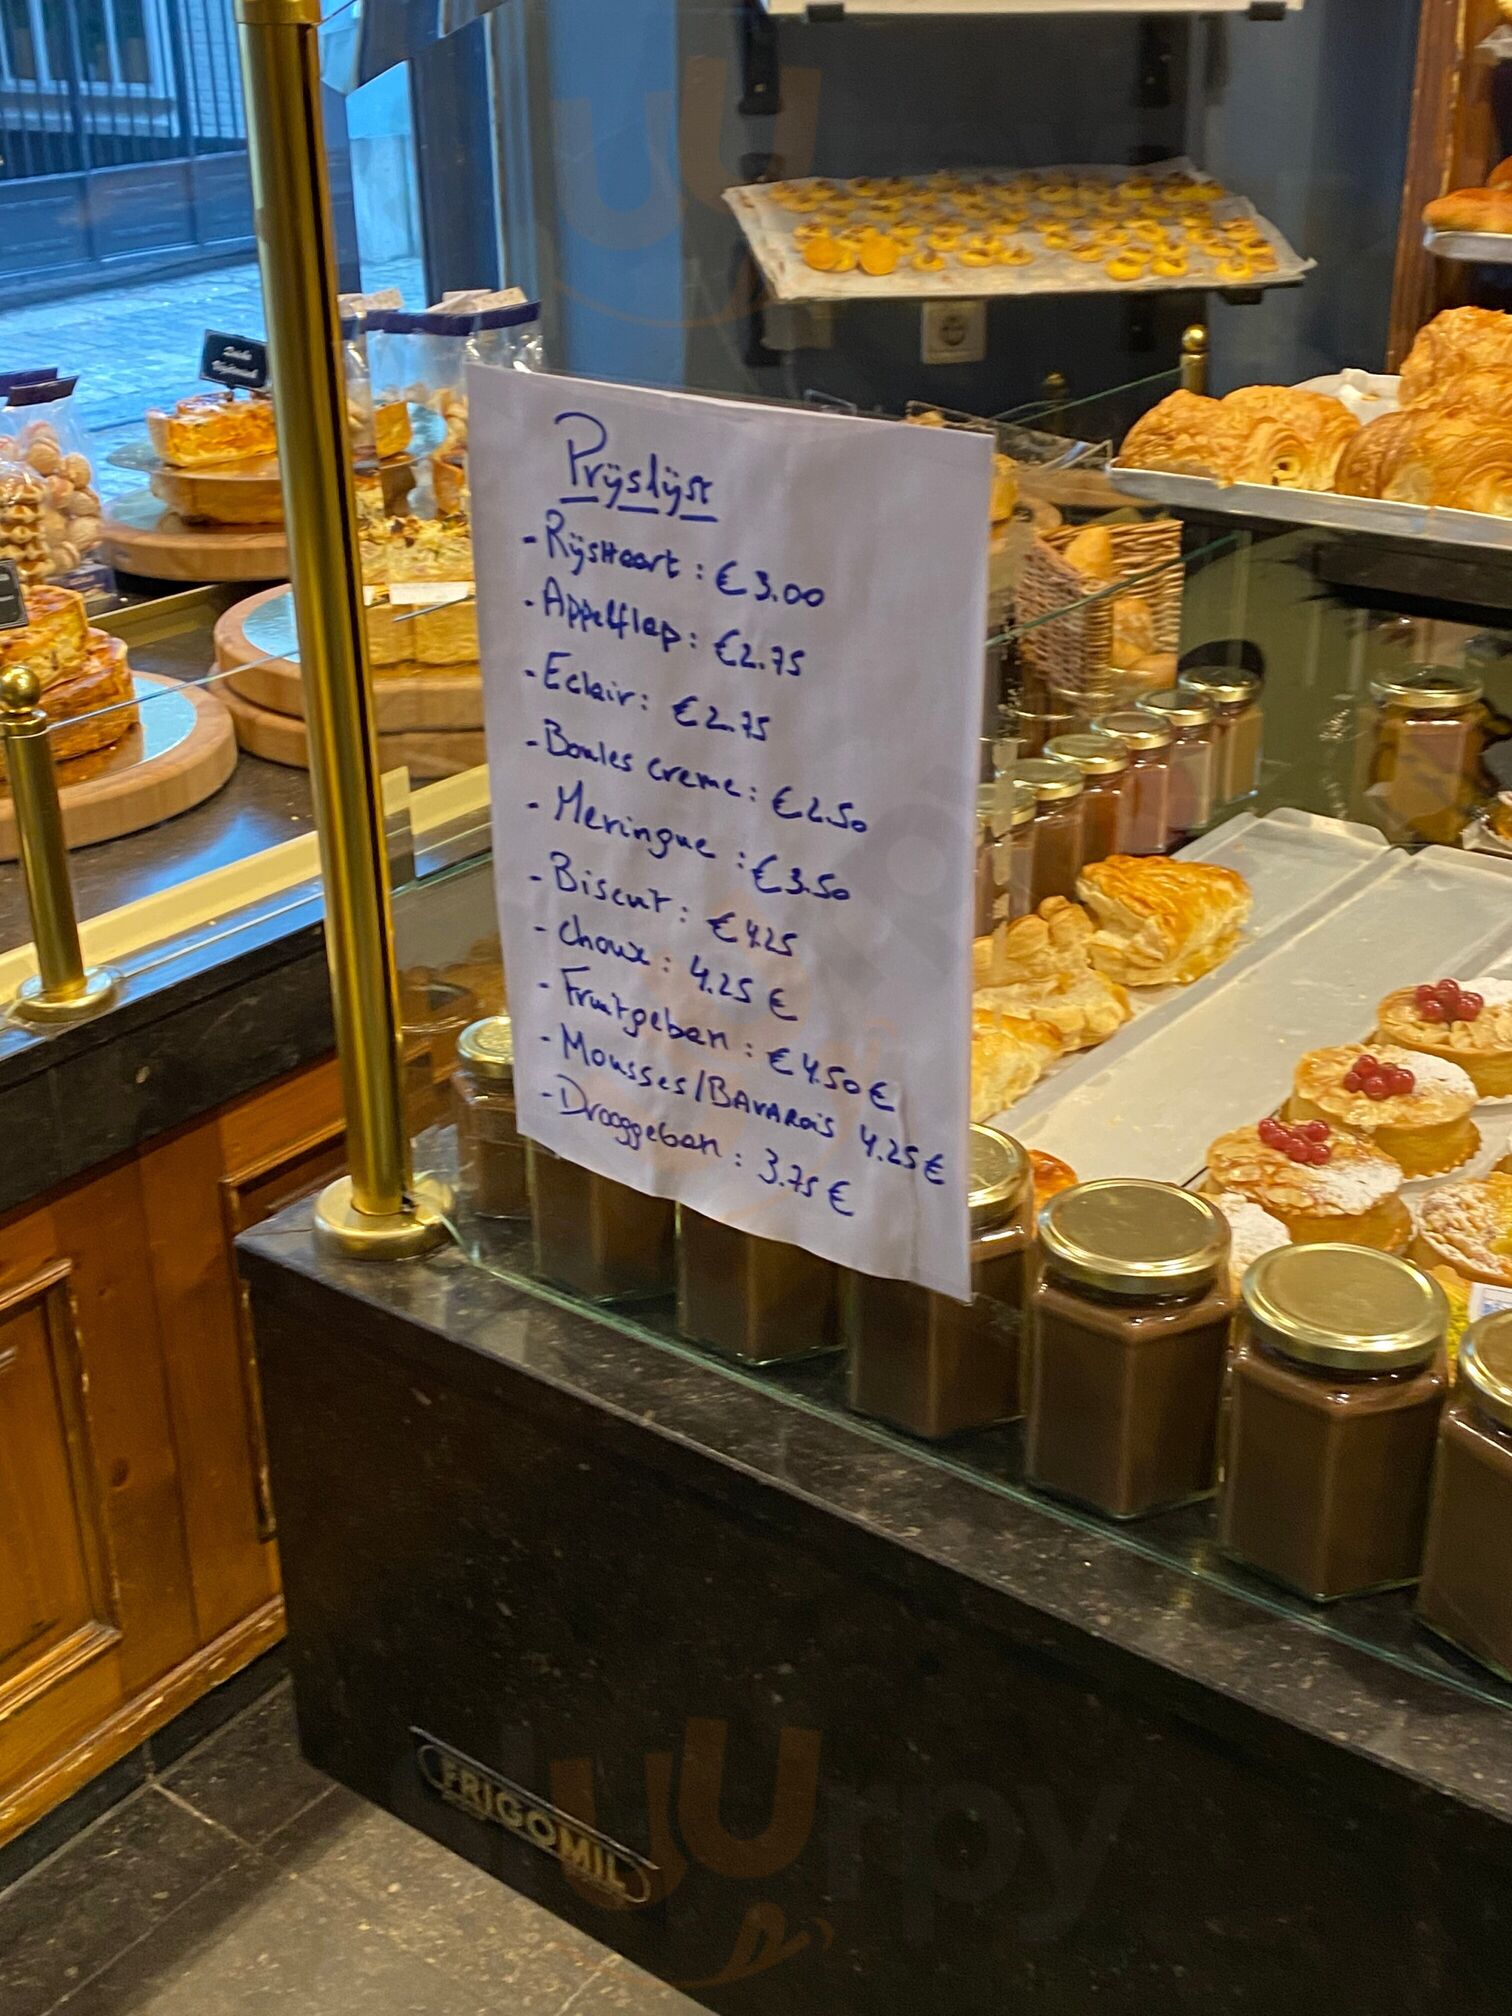 Prijslijst
- Rijsttaart : € 3.00
- Appelflap : € 2.75
- Eclair : € 2.75
- Boules creme : € 2.50
- Meringue : € 3.50
- Biscuit : € 4.25
- Choux : 4.25 €
- Fruitgeban : € 4.50 €
- Mousses/BAVAROIS 4.25 €
- Drooggeban : 3.75 €
FRIGOMIL